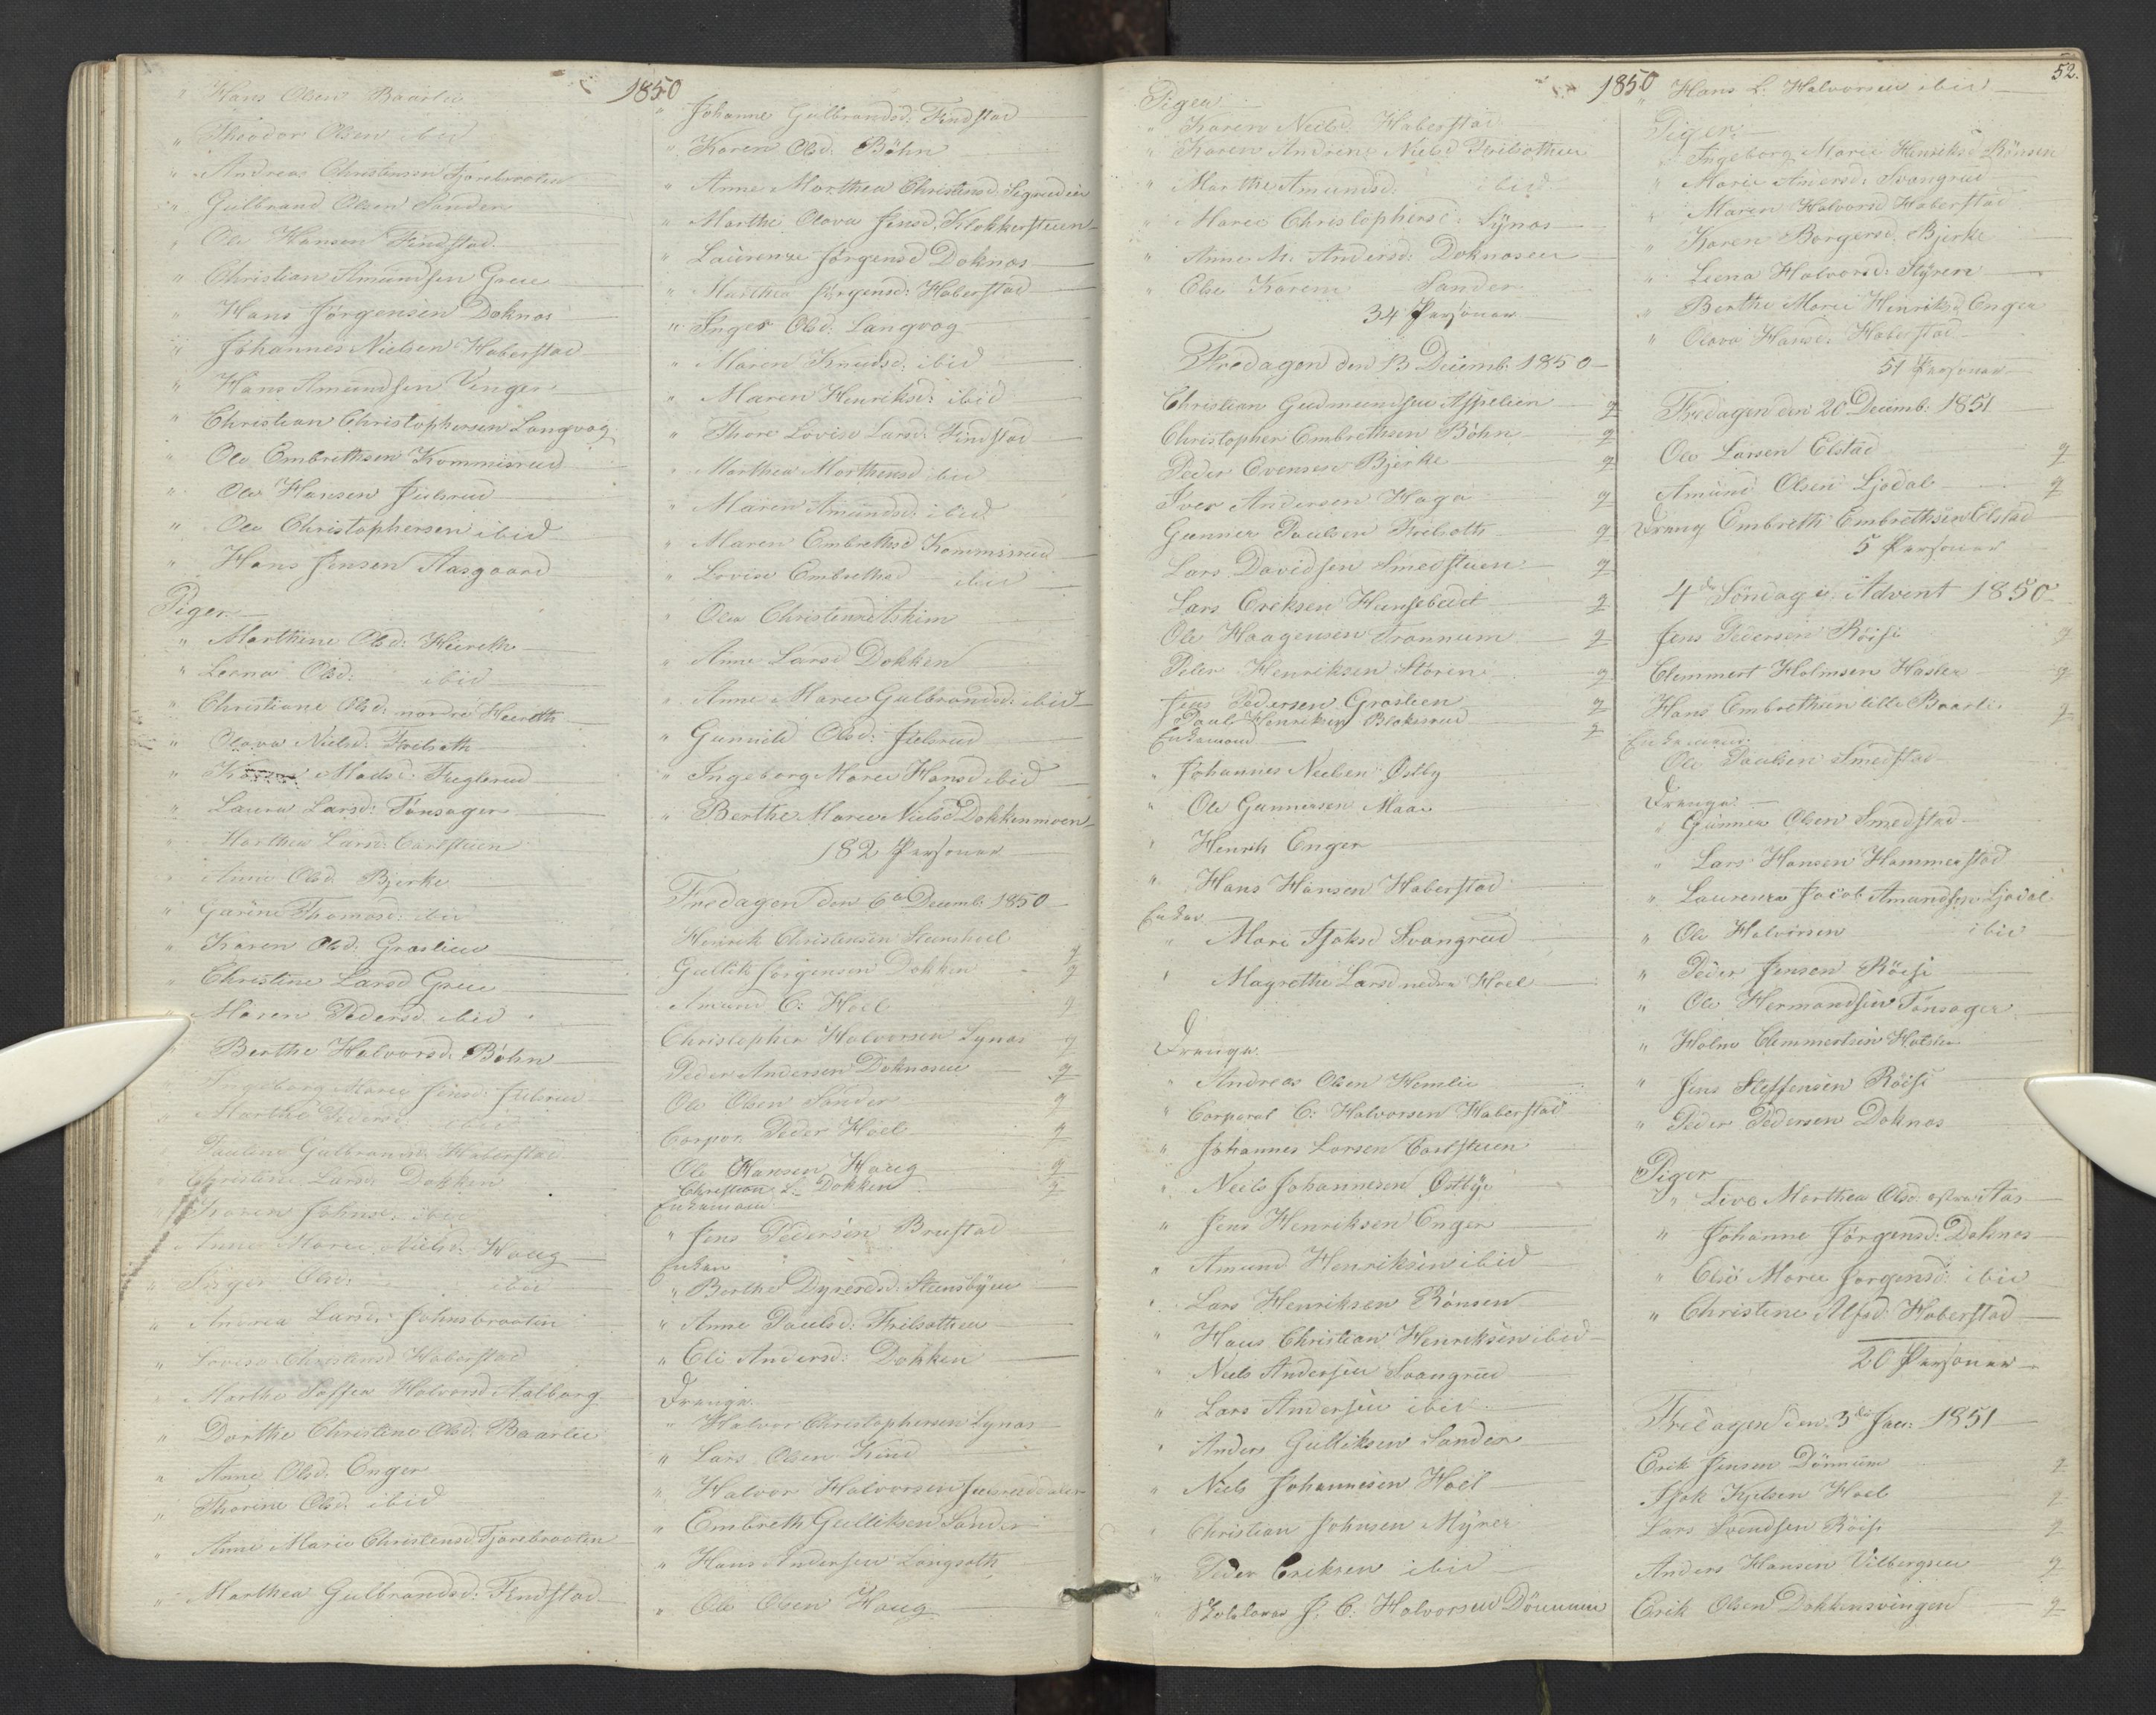 1850
" Hans Olsen Baarlie
" Theodor Olsen ibid
" Andreas Christensen Tjernbraaten
" Gulbrand Olsen Sander
" Ole Hansen Findstad
" Christian Amundsen Greie
" Hans Jörgensen Doknos
" Johannes Nielsen Haberstad
" Hans Amundsen Unger
" Christian Christophersen Langvog
" Ole Embrethsen Kommisrud
" Ole Hansen Julsrud
" Ole Christophersen ibid
" Hans Jensen Aasgaard
Piger
" Marthine Olsd: Heireth
" Leena Olsd: ibid
" Christiane Olsd: nordre Heireth
" Olava Nielsd: Frilseth
" Madsd: Fuglerud
" Laura Larsd: Tönsager
" Marthea Larsd: Carlstuen
" Anne Olsd Bjerke
" Gurine Thomasd: ibid
" Karen Olsd. Graslien
" Christine Larsd Greie
" Maren Pedersd. ibid
" Berthe Halvorsd. Böhn
" Ingeborg Marie Jensd. Julsrud
" Marthe Pedersd: ibid
" Pauline Gulbrandsd. Haberstad
" Christine Larsd. Dokken
" Karen Johnsd. ibid
" Anne Marie Nielsd. Haug
" Inger Olsd: ibid
" Andrea Larsd: Johnsbraaten
" Lovise Christensd Haberstad
" Marthe Soffea Halvorsd Aalborg
" Dorthe Christine Olsd. Baarlie
" Anne Olsd. Enger
" Thorine Olsd. ibid
" Anne Marie Christensd. Tjernbraaten
" Marthea Gulbrandsd: Findstad
" Johanne Gulbrandsd. Findstad
" Karen Olsd. Böhn
" Anne Marthea Christensd. Sigrudeie
" Marthe Olava Jensd. Klokkerstuen
" Laurense Jörgensd Doknos
" Marthea Jörgensd: Haberstad
" Inger Olsd. Langvog
" Maren Knudsd. ibid
" Maren Henriksd: ibid
" Thore Lovise Larsd. Findstad
" Marthea Marthensd ibid
" Maren Amundsd: ibid
" Maren Embrethsd Kommisrud
" Lovise Embrethsd ibid
" Olea Christensd Askim
" Anne Larsd Dokken
" Anne Marie Gulbrandsd. ibid
" Gunnild Olsd: Julsrud
" Ingeborg Marie Hansd ibid
" Berthe Marie Nielsd Dokkenmoen
182 Personer
Fredagen den 6te Decemb. 1850
Henrik Christensen Steensheel g
Gullik Jörgensen Dokken g
Amund C: Hoel g
Christopher Halvorsen Lynas g
Peder Andersen Doknosen g
Ole Olsen Sander g
Corpor. Peder Hoel g
Ole Hansen Haug g
Christian L. Dokken g
Enkemand
" Jens Pedersen Brustad
Enken
" Berthe Dyresd. Steensbyeie
" Anne Poulsd: Frilsethen
" Eli Andersd: Dokken
Drenge
" Halvor Christophersen Lynas
" Lars Olsen Kind
" Halvor Halvorsen
" Embreth Gulliksen Sander
" Hans Andersen Langseth
" Ole Olsen Haug
1850
Piger
" Karen Neilsd. Haberstad
" Karen Andrine Nielsd Frilsethen
" Marthe Amundsd: ibid
" Maree Christophersd: Lynas
" Anne M. Andersd: Doknosen
" Else Karen Sander
34 Personer
Fredagen den 13 Decemb. 1850
Christian Gudmundsen Aspelien g
Christopher Embrethsen Böhn g
Peder Evensen Bjerke g
Iver Andersen Haga g
Gunner Paulsen Frilseth g
Lars Davidsen Smedstuen g
Lars Eriksen Hunsebedet g
Ole Haagensen Trannum g
Peter Henriksen Stören g
Jens Pedersen Graslien g
Paul Henriksen Blakisrud g
Enkemand
" Johannes Nielsen Østby
" Ole Gunnersen Maae
" Henrik Enger
" Hans Hansen Haberstad
Enker
" Mari Isaksd Svangrud
" Magrethe Larsd nedre Hoel
Drenge
" Andreas Olsen Hemlie
" Corporal C: Halvorsen Haberstad
" Johannes Larsen Carlstuen
" Neils Johannesen Østbye
" Jens Henriksen Enger
" Amund Henriksen ibid
" Lars Henriksen Rönsen
" Hans Christian Henriksen ibid
" Neels Andersen Svangrud
" Lars Andersen ibid
" Anders Gulliksen Sander
" Niels Johannesen Hoel
" Christian Johnsen Myrer
" Peder Eriksen ibid
" Skolelærer J. C. Halvorsen Dönnum
52.
" Hans L. Halvorsen ibid
Piger
" Ingeborg Marie Henriksd Rönsen
" Marie Andersd: Svangrud
" Maren Halvorsd Haberstad
" Karen Borgersd. Bjerke
" Leena Halvorsd: Styren
" Berthe Marie Henriksd Enger
" Olava Hansd. Haberstad
51 Personer
Fredagen den 20 Decemb: 1851
Ole Larsen Elstad g
Amund Olsen Ljødal g
Dreng Embreth Embrethsen Elstad
5 Personer
4de Söndag i Advent 1850
Jens Pedersen Röise g
Clemmert Holmsen Hasler g
Hans Embrethsen lille Baarlie g
Enkemand:
Ole Paulsen Smedstad
Drenge:
" Gunner Olsen Smedstad
" Lars Hansen Hammerstad
" Laurenzs Jacob Amundsen Ljødal
" Ole Halvorsen ibid
" Peder Jensen Röise
" Ole Hermandsen Tönsager
" Holm Clemmertsen Hasler
" Jens Steffensen Röise
" Peder Pedersen Doknos
Piger
" Live Marthea Olsd. østre Aas
" Johanne Jörgensd: Doknos
" Else Marie Jörgensd: ibid
" Christine Alfsd. Haberstad
20 Personer
Fredagen den 3die Jan: 1851
Erik Jensen Dönnum g
Isak Kjelsen Hoel g
Lars Svendsen Röise g
Anders Hansen Vilbergseie g
Erik Olsen Dokkensvingen g